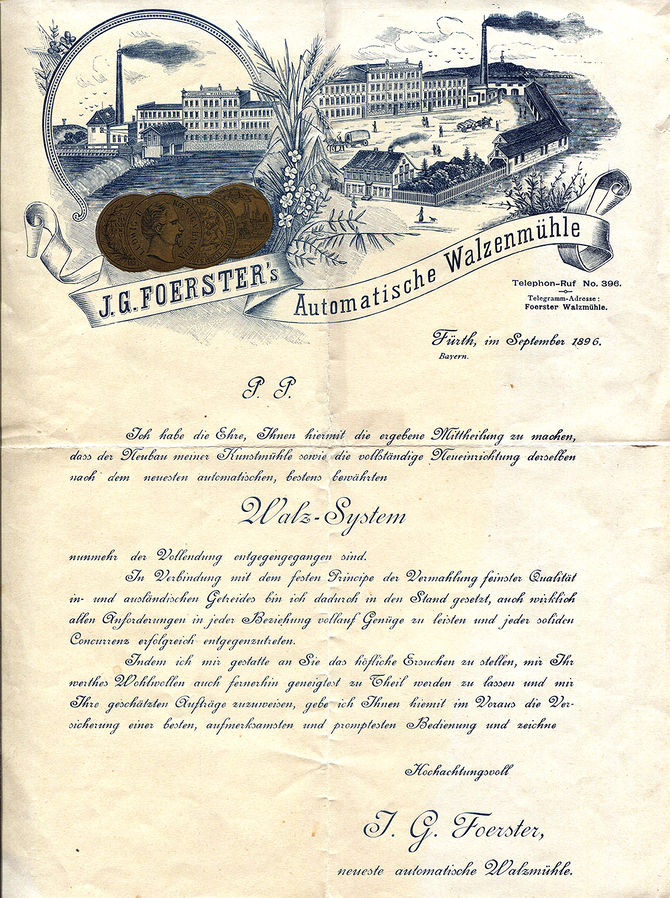 J.G. FOERSTER's Automatische Walzenmühle
Telephon-Ruf No. 396.
Telegramm-Adresse:
Foerster Walzmühle.
Fürth, im September 1896.
Bayern.
P. P.
Ich habe die Ehre, Ihnen hiermit die ergebene Mittheilung zu machen,
dass der Neubau meiner Kunstmühle sowie die vollständige Neueinrichtung derselben
nach dem neuesten automatischen, bestens bewährten
Walz-System
nunmehr der Vollendung entgegengegangen sind.
In Verbindung mit dem festen Principe der Vermahlung feinster Qualität
in- und ausländischen Getreides bin ich dadurch in den Stand gesetzt, auch wirklich
allen Anforderungen in jeder Beziehung vollauf Genüge zu leisten und jeder soliden
Concurrenz erfolgreich entgegenzutreten.
Indem ich mir gestatte an Sie das höfliche Ersuchen zu stellen, mir Ihr
werthes Wohlwollen auch fernerhin geneigtest zu Theil werden zu lassen und mir
Ihre geschätzten Aufträge zuzuweisen, gebe ich Ihnen hiemit im Voraus die Ver-
sicherung einer besten, aufmerksamsten und promptesten Bedienung und zeichne
Hochachtungsvoll
J. G. Foerster,
neueste automatische Walzmühle.